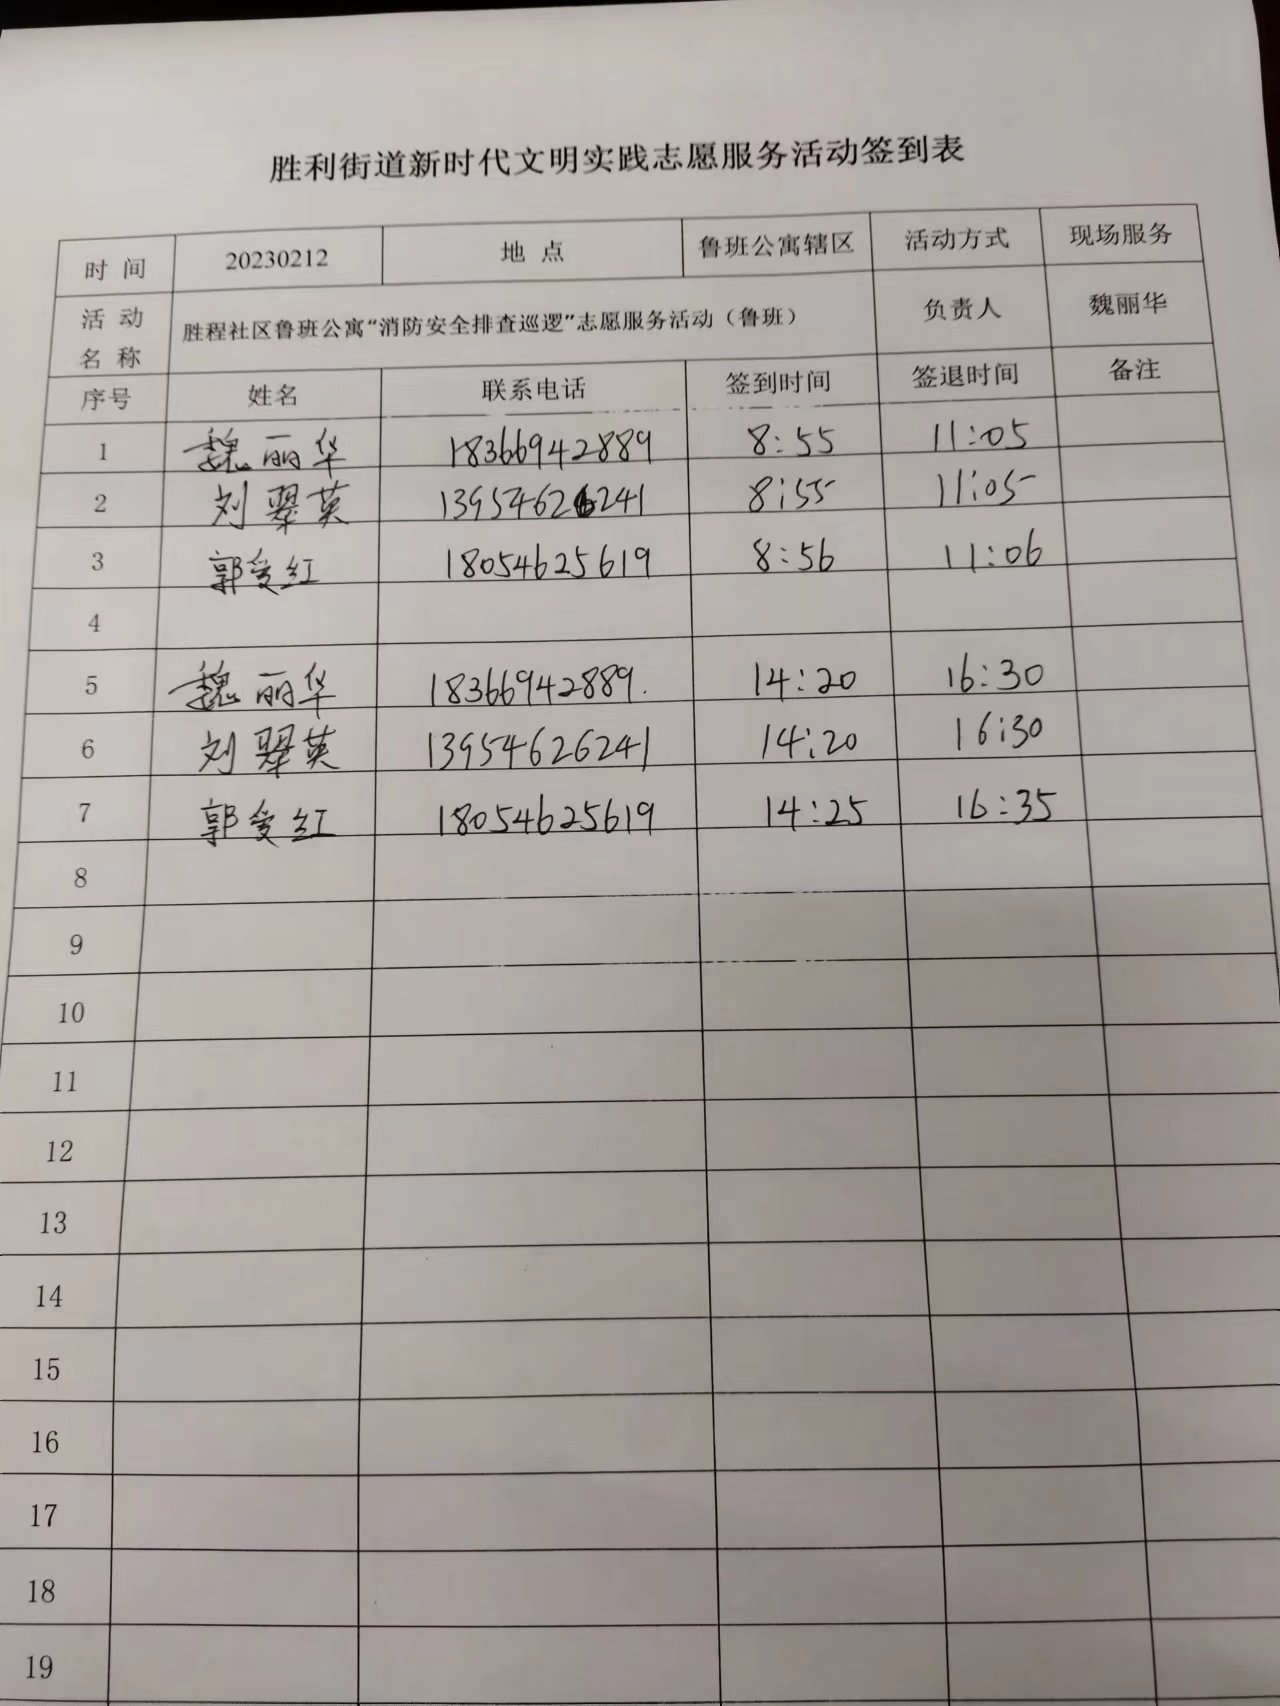 胜利街道新时代文明实践志愿服务活动签到表
时 间 20230212 地 点 鲁班公寓辖区 活动方式 现场服务
活 动 名 称 胜程社区鲁班公寓“消防安全排查巡逻”志愿服务活动（鲁班） 负责人 魏丽华
序号 姓名 联系电话 签到时间 签退时间 备注
1 魏丽华 18366942889 8:55 11:05
2 刘翠英 13954626241 8:55 11:05
3 郭爱红 18054625619 8:56 11:06
4
5 魏丽华 18366942889. 14:20 16:30
6 刘翠英 13954626241 14:20 16:30
7 郭爱红 18054625619 14:25 16:35
8
9
10
11
12
13
14
15
16
17
18
19